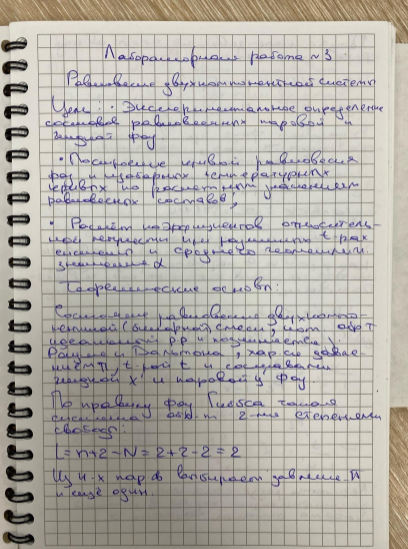 Лабораторная работа №3
Равновесие двухкомпонентной системы
Цель: · Экспериментальное определение
составов равновесных паровой и
жидкой фаз
· Построение кривой равновесия
фаз и изобарных температурных
кривых по расчетным значениям
равновесных составов;
· Расчёт коэффициентов относитель-
ной летучести при различных t-рах
системы и среднего геометрич.
значения α
Теоретические основы:
Состояние равновесия двухкомпо-
нентной (бинарной смеси,
идеальный р-р и подчиняется з.
Рауля и Дальтона, хар-ся давле-
нием П, t-рой t и составами
жидкой x и паровой y фаз.
По правилу фаз Гиббса такая
система 2-мя степенями
свободы:
C = n + 2 - N = 2 + 2 - 2 = 2
Из 4-х пар-ов выбирает давление П
и ещё один.